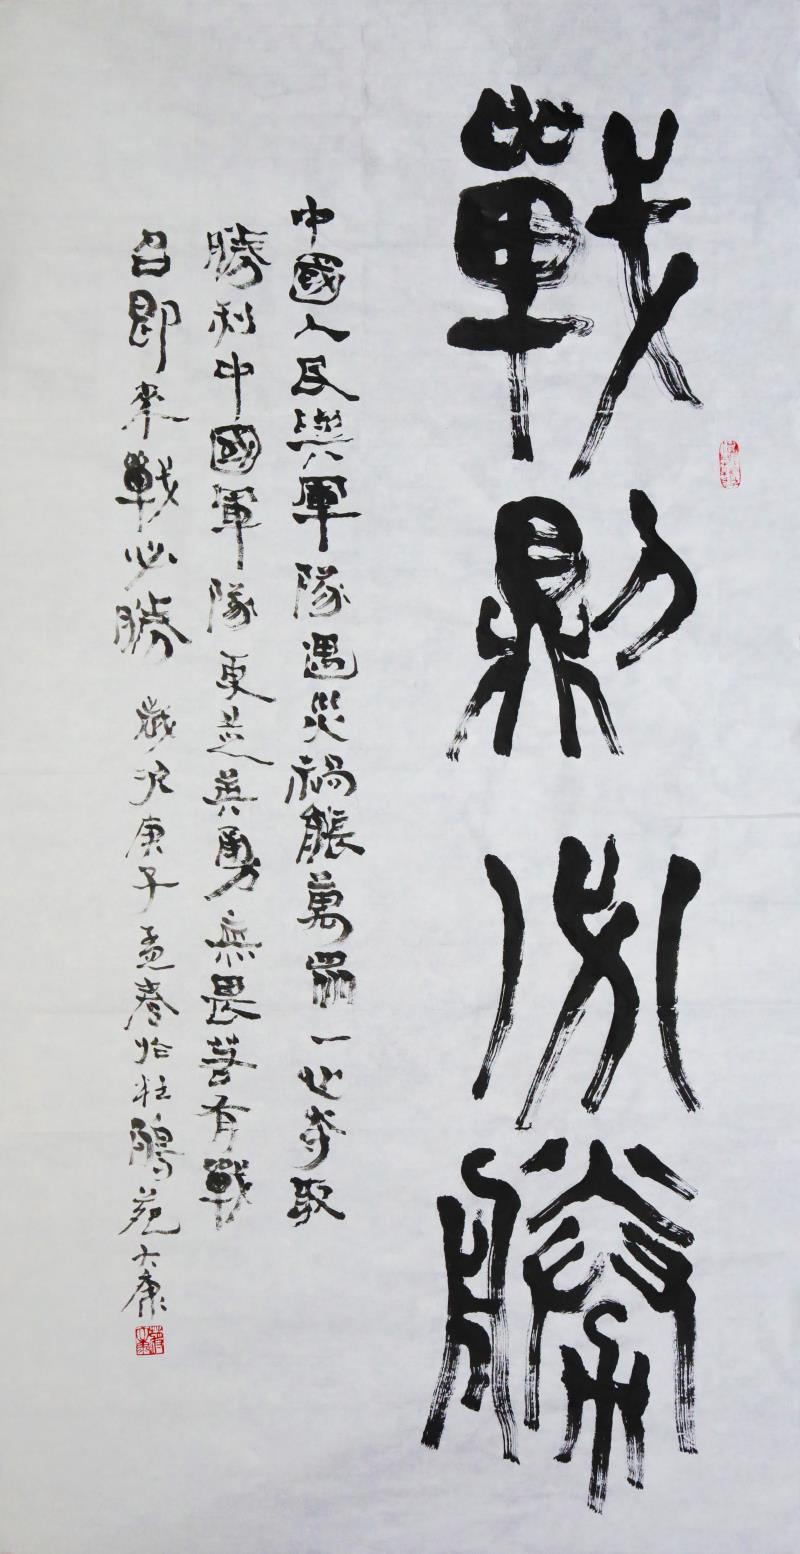 戰則必勝
中國人民與軍隊遇災禍能萬眾一心夺取
勝利中國軍隊更是英勇無畏若有戰
召即來戰必勝 歲次庚子孟春於杜鵑苑大康